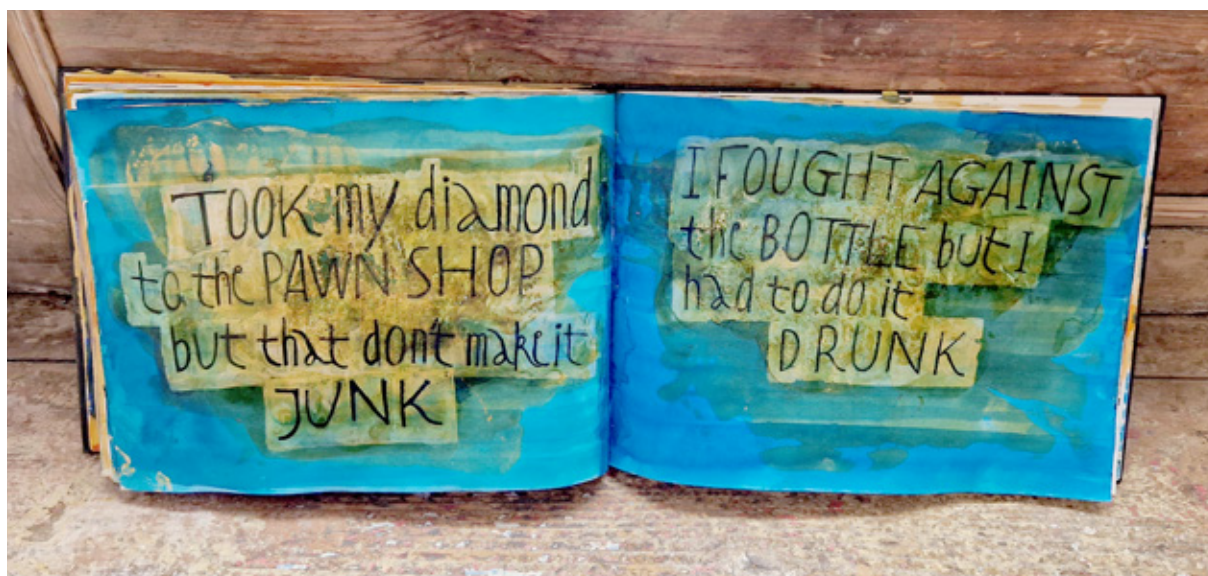 TOOK my diamond
to the PAWN SHOP
but that don't make it
JUNK
I FOUGHT AGAINST
the BOTTLE but I
had to do it
DRUNK